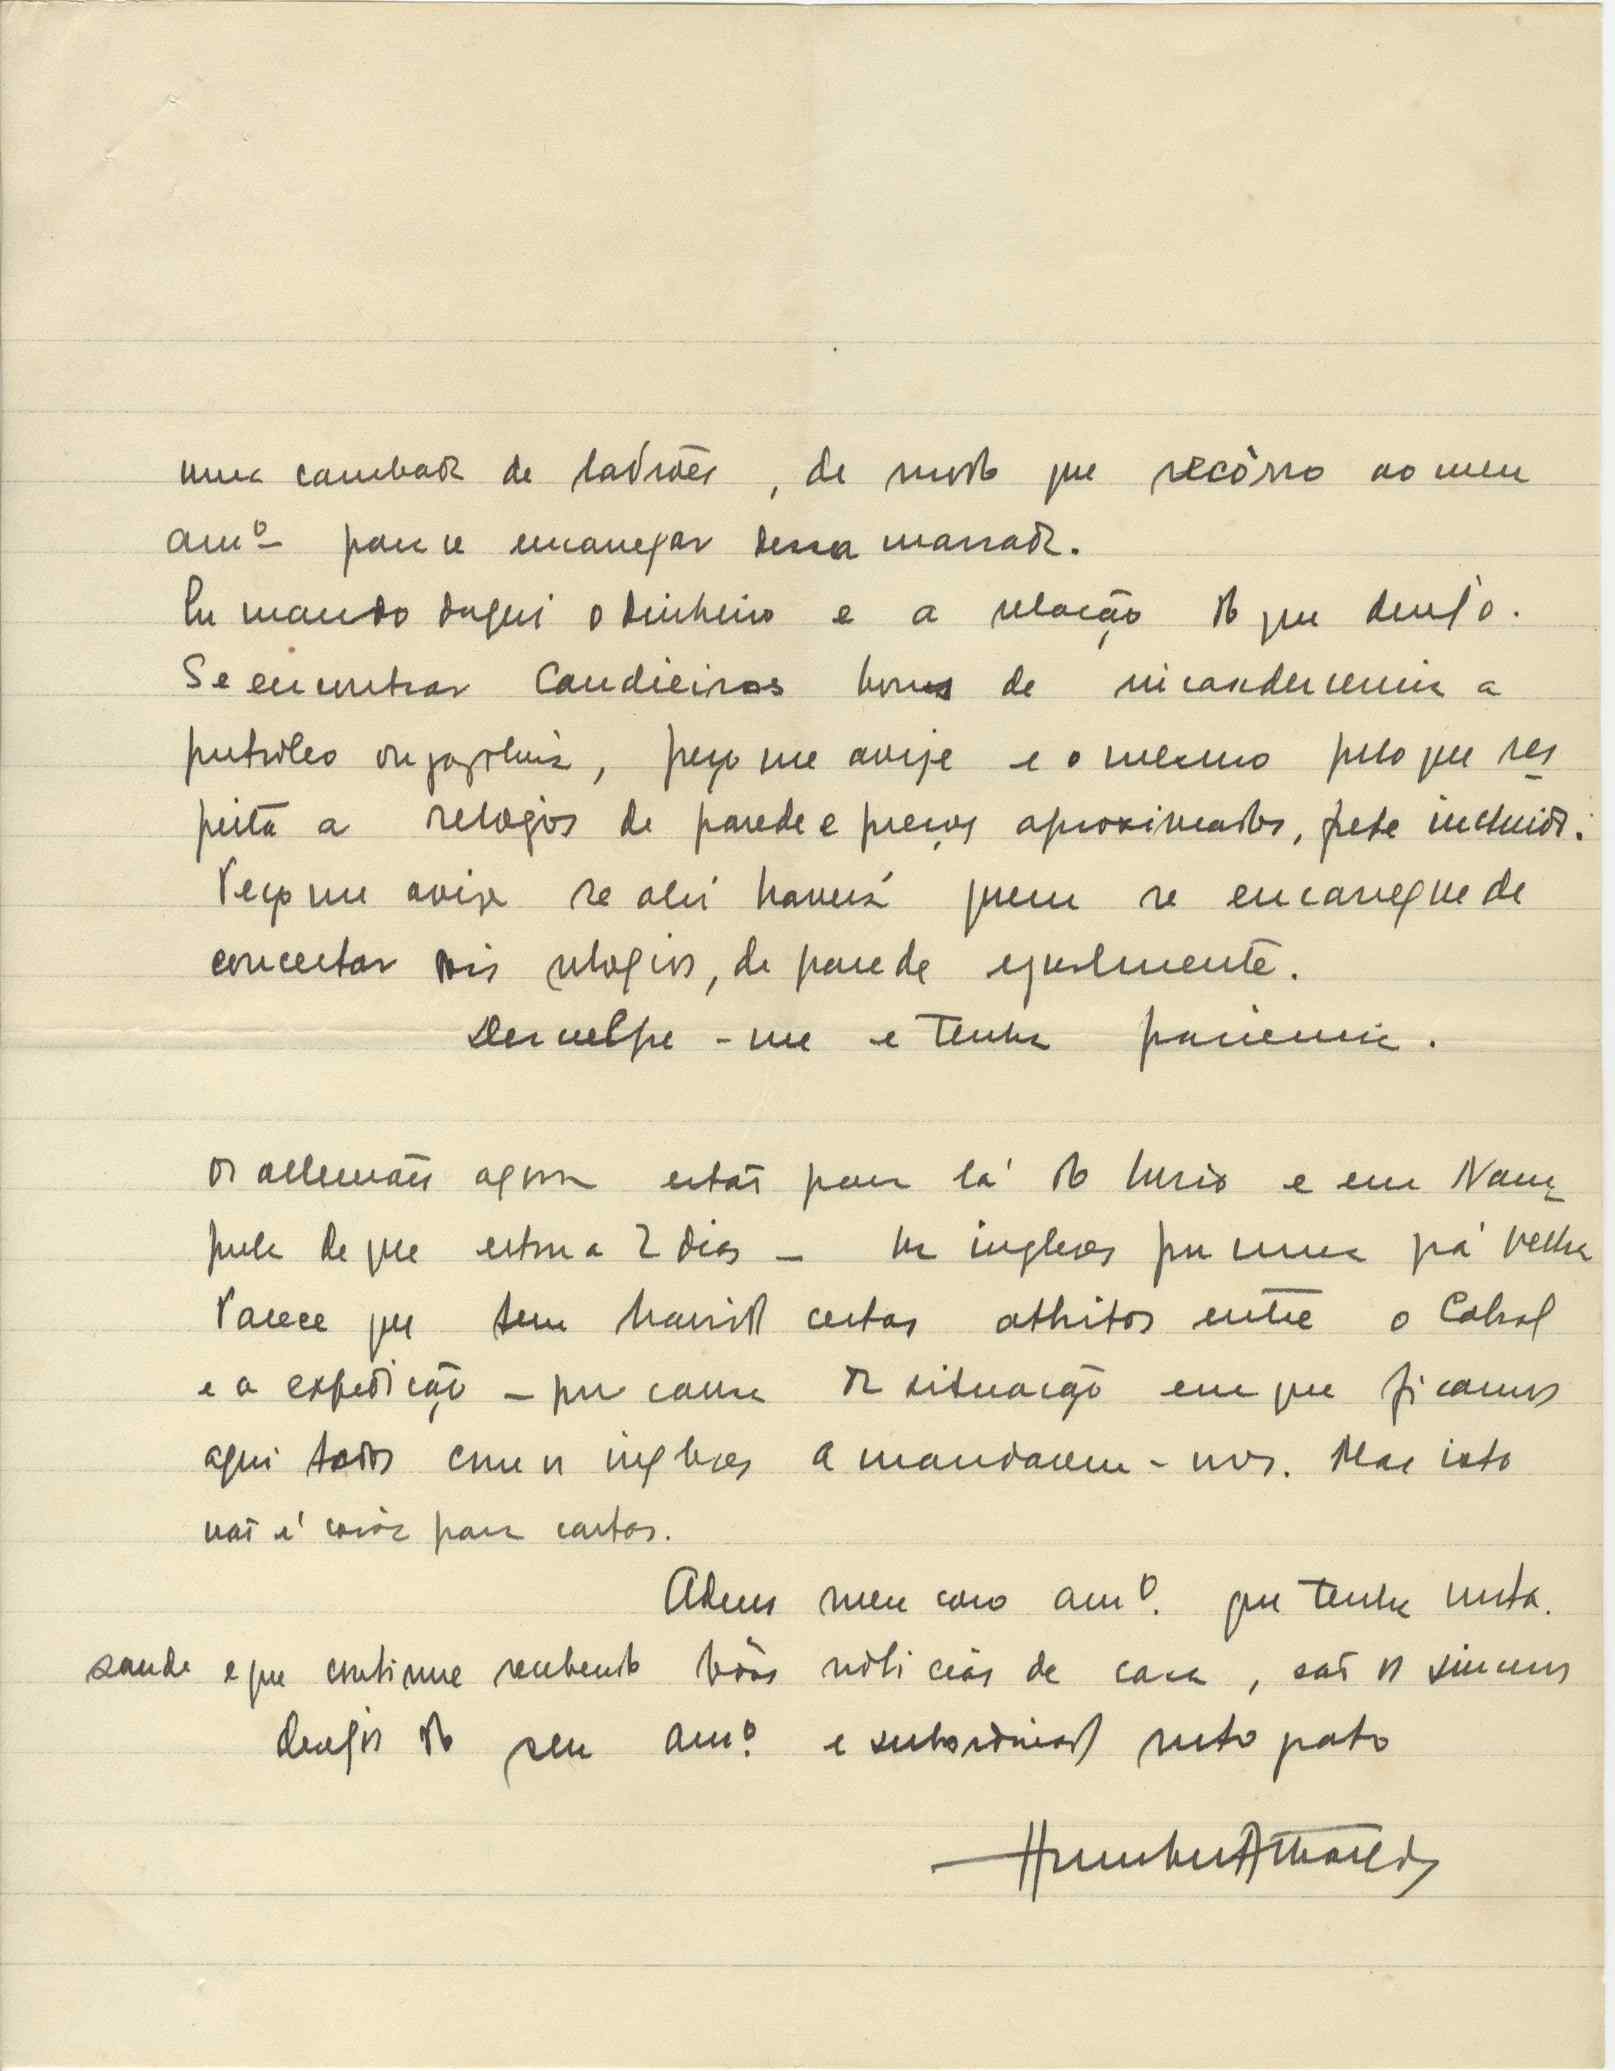 uma cambada de ladrões, de modo que recôrro ao meu
amº para se encarregar dessa massada.
Eu mando daqui o dinheiro e a relação do que desejo.
Se encontrar Candieiros bons de incandescencia a
petroleo ou gazolina, peço me avize e o mesmo pelo que res
peita a relogios de parede e preços aproximados, frete incluido.
Peço me avize se ahi haverá quem se encarregue de
concertar dois relogios, de parede egualmente.
Desculpe-me e tenha paciencia.
Os allemães agora estão para lá do Lurio e em Nam
pula de que estou a 2 dias – os inglezes por uma pá velha
Parece que tem havido certos athritos entre o Cabral
e a expedição – por causa da situação em que ficamos
aqui todos com os inglezes a mandarem-nos. Mas isto
não é coisa para cartas.
Adeus meu caro amº. que tenha muita.
saude e que continue recebendo bôas noticias de casa, são os sinceros
desejos do seu amº. e subordinado muto grato
Humberto Athayde